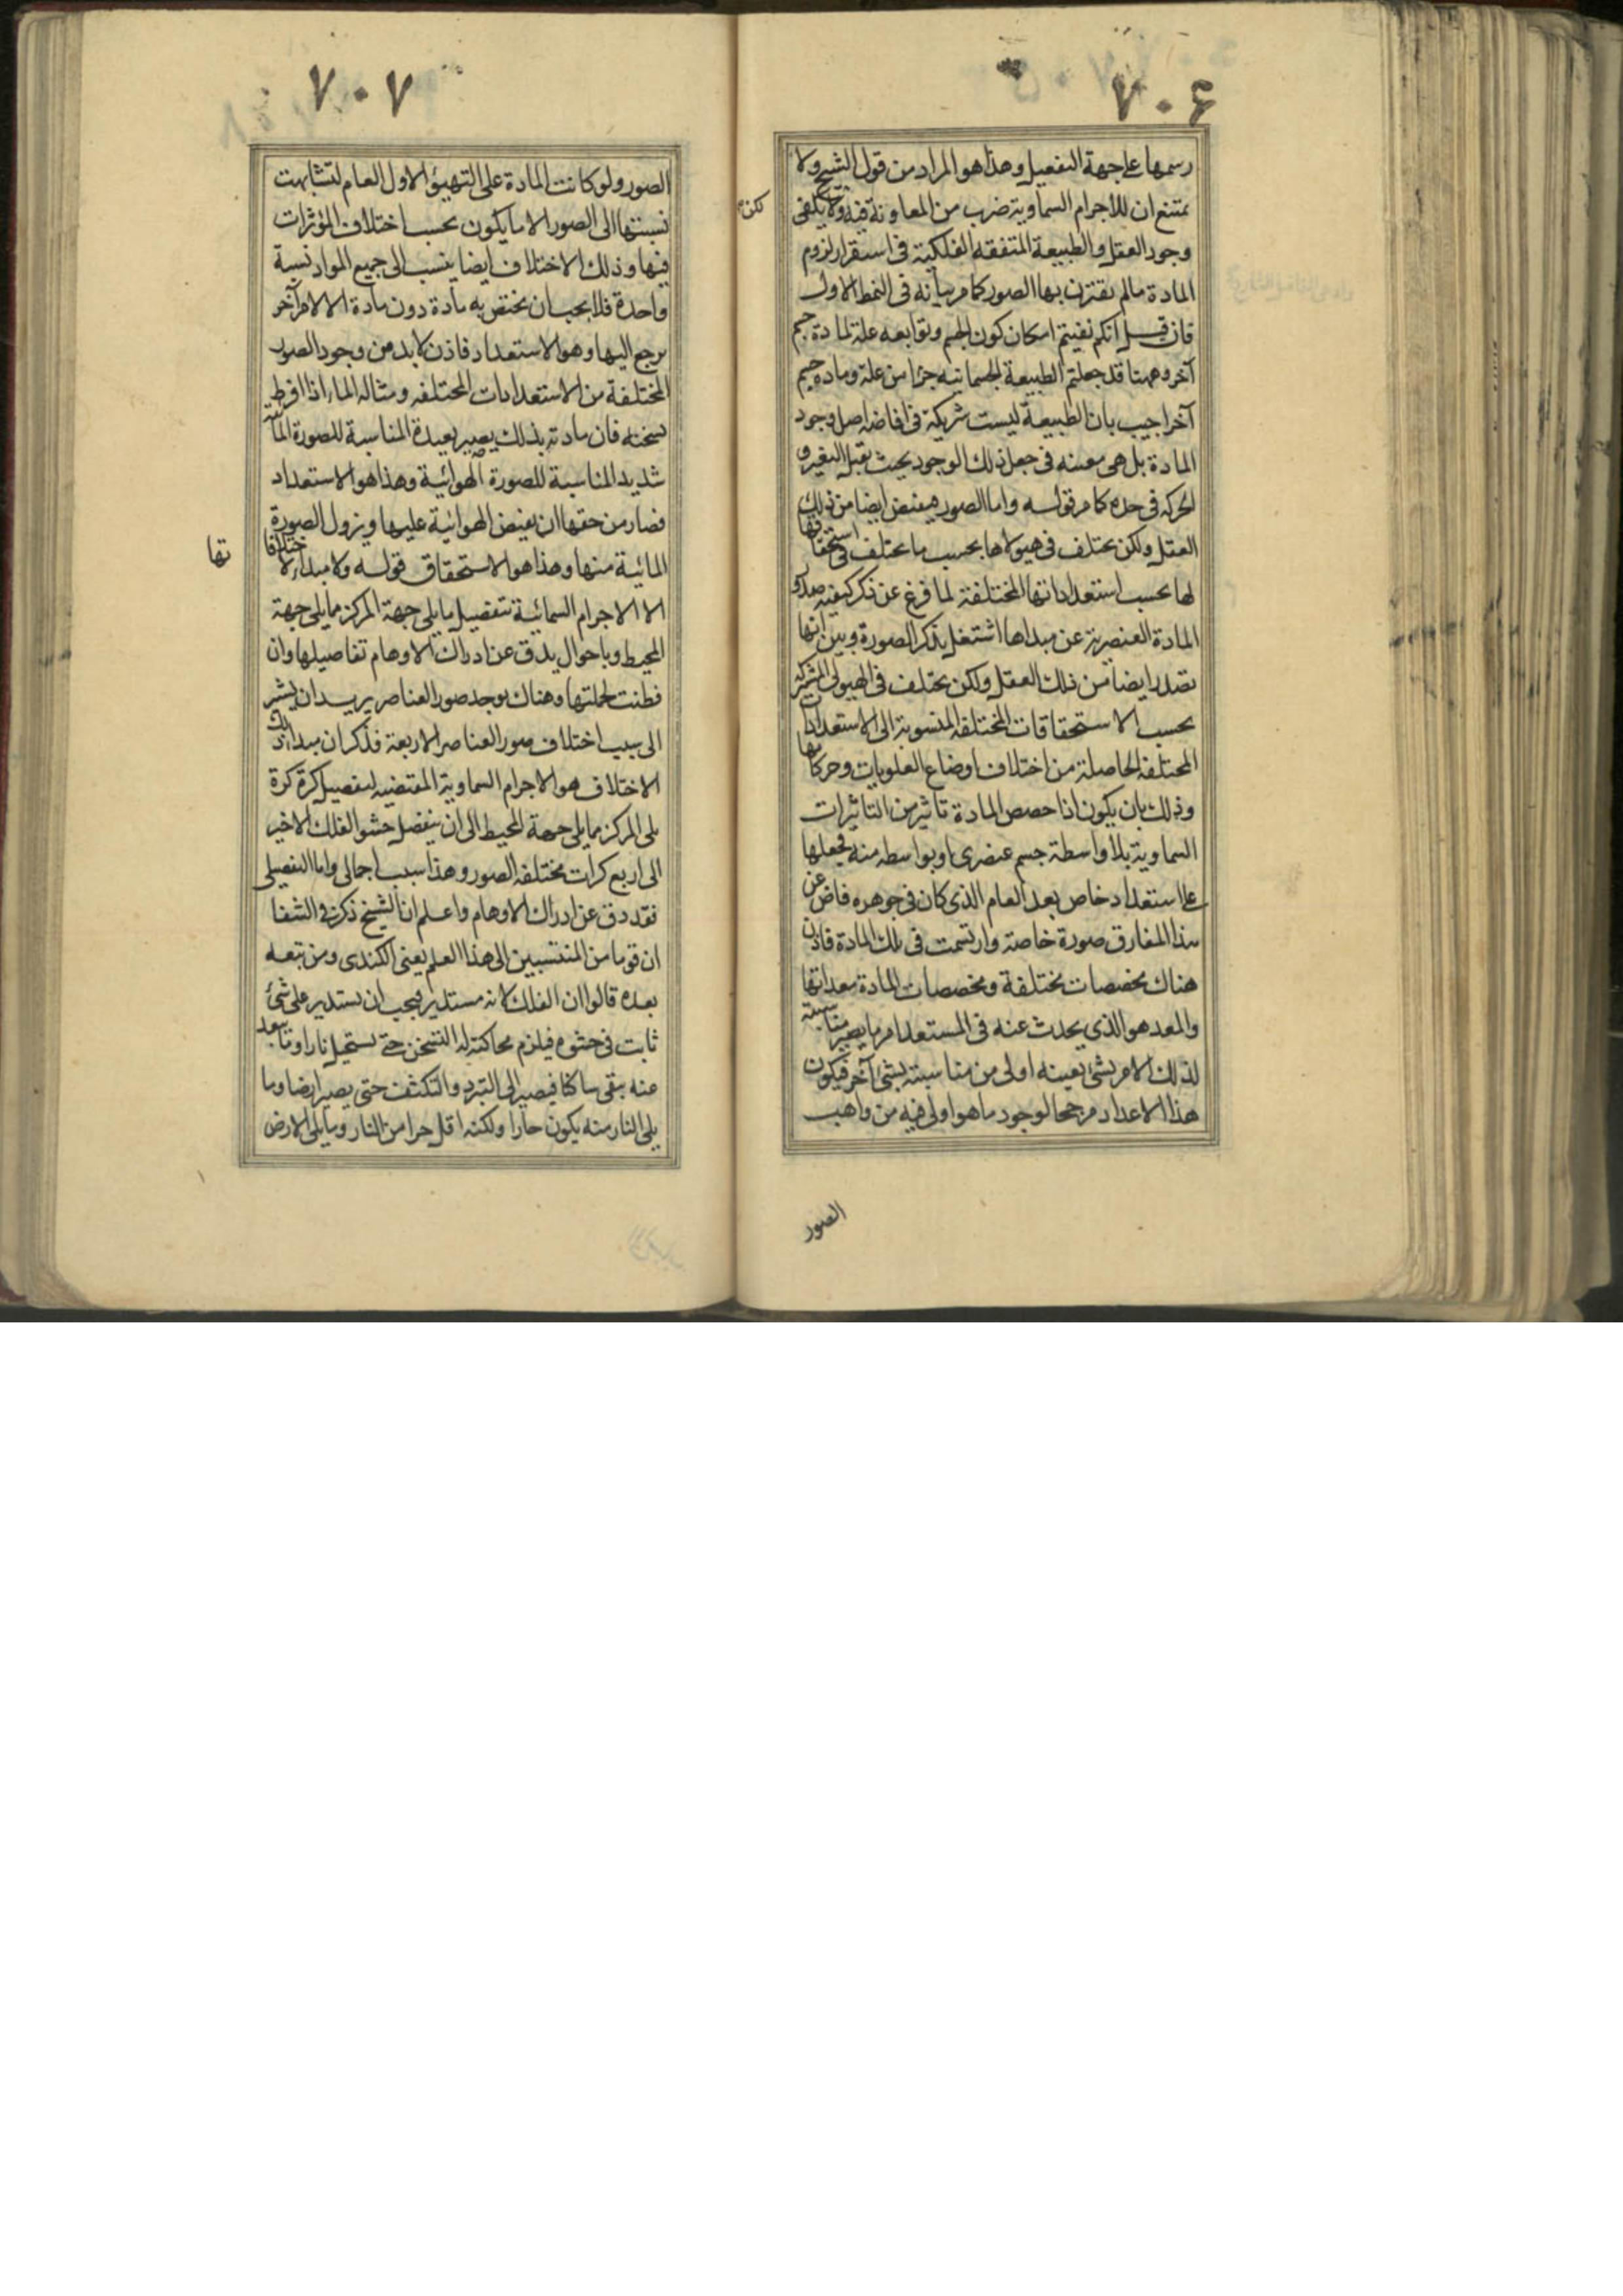 ٧٠۶
رسمها على جهة التفصيل وهذا هو المراد من قول الشيخ ولا
يمتنع ان للاجرام السماوية ضرب من المعاونة فيه ولا يكفى
لكن
وجود العقل والطبيعة المتفقه الفلكية فى استقرار لزوم
المادة مالم يقترن بها الصور كما مر بيانه فى النمط الاول
فان قيل انكم نفيتم امكان كون الجسم وتوابعه علة لمادة جسم
آخر وههنا قد جعلتم الطبيعة الجسمانيه جزءا من علة ومادة جسم
آخر اجيب بان الطبيعة ليست شريكة فى افاضة اصل وجود
المادة بل هى معينه فى جعل ذلك الوجود بحيث يقبل التغير و
الحركة فى حده كما مر قوله واما الصور فيفيض ايضا من ذلك
العقل ولكن يختلف فى هيولاها بحسب ما يختلف فى استحقاقها
لها بحسب استعداداتها المختلفة لما فرغ عن ذكر كيفية صدور
المادة العنصرية عن مبداها اشتغل بذكر الصورة وبين انها
تصدر ايضا من ذلك العقل ولكن يختلف فى الهيولى المشتركة
بحسب الاستحقاقات المختلفه المنسوبة الى الاستعدادات
المختلفه الحاصلة من اختلاف اوضاع العلويات وحركاتها
وذلك بان يكون اذا خصص المادة تاثير من التاثيرات
السماوية بلا واسطة جسم عنصرى او بواسطه منه فجعلها
على استعداد خاص بعد العام الذى كان فى جوهره فاض عن
هذا المفارق صورة خاصة وارتسمت فى تلك المادة فاذن
هناك مخصصات مختلفة ومخصصات المادة معداتها
والمعد هو الذى يحدث عنه فى المستعد امر ما يصير مناسبته
لذلك الامر بشئ بعينه اولى من مناسبته بشئ آخر فيكون
هذا الاعداد مرجحا لوجود ما هو اولى فيه من واهب
الصور
٧٠٧
الصور ولو كانت المادة على التهيؤ الاول العام لتشابهت
نسبتها الى الصور الا ما يكون بحسب اختلاف المؤثرات
فيها وذلك الاختلاف ايضا ينسب الى جميع المواد نسبة
واحدة فلا يجب ان يختص به مادة دون مادة الا لامر آخر
يرجع اليها وهو الاستعداد فاذن لابد من وجود الصور
المختلفة من الاستعدادات المختلفه ومثاله الماء اذا افرط
تسخنه فان مادته بذلك يصير بعيدة المناسبة للصورة المائية
شديد المناسبة للصورة الهوائية وهذا هو الاستعداد
فصار من حقها ان يفيض الهوائية عليها ويزول الصورة
المائية منها وهذا هو الاستحقاق قوله ولا مبدا لاختلافا
تها
الا الاجرام السمائية بتفصيل ما يلى جهة المركز مما يلى جهة
المحيط وباحوال يدق عن ادراك الاوهام تفاصيلها وان
فطنت لجملتها وهناك يوجد صور العناصر يريد ان يشير
الى سبب اختلاف صور العناصر الاربعة فذكر ان مبدا ذلك
الاختلاف هو الاجرام السماوية المقتضيه لتفصيل كرة كرة
يلى المركز مما يلى جهة المحيط الى ان ينفصل حشو الفلك الاخير
الى اربع كرات مختلفه الصور وهذا سبب اجمالى واما التفصيلى
فقد دق عن ادراك الاوهام واعلم ان الشيخ ذكر فى الشفا
ان قوما من المنتسبين الى هذا العلم يعنى الكندى ومن تبعه
بعده قالوا ان الفلك لانه مستدير فيجب ان يستدير على شئ
ثابت فى حشوه فيلزم محاكته له التسخن حتى يستحيل نارا وتا بعد
عنه يبقى ساكنا فيصير الى التبرد والتكثف حتى يصير ارضا وما
يلى النار منه يكون حارا ولكنه اقل حرا من النار وما يلى الارض